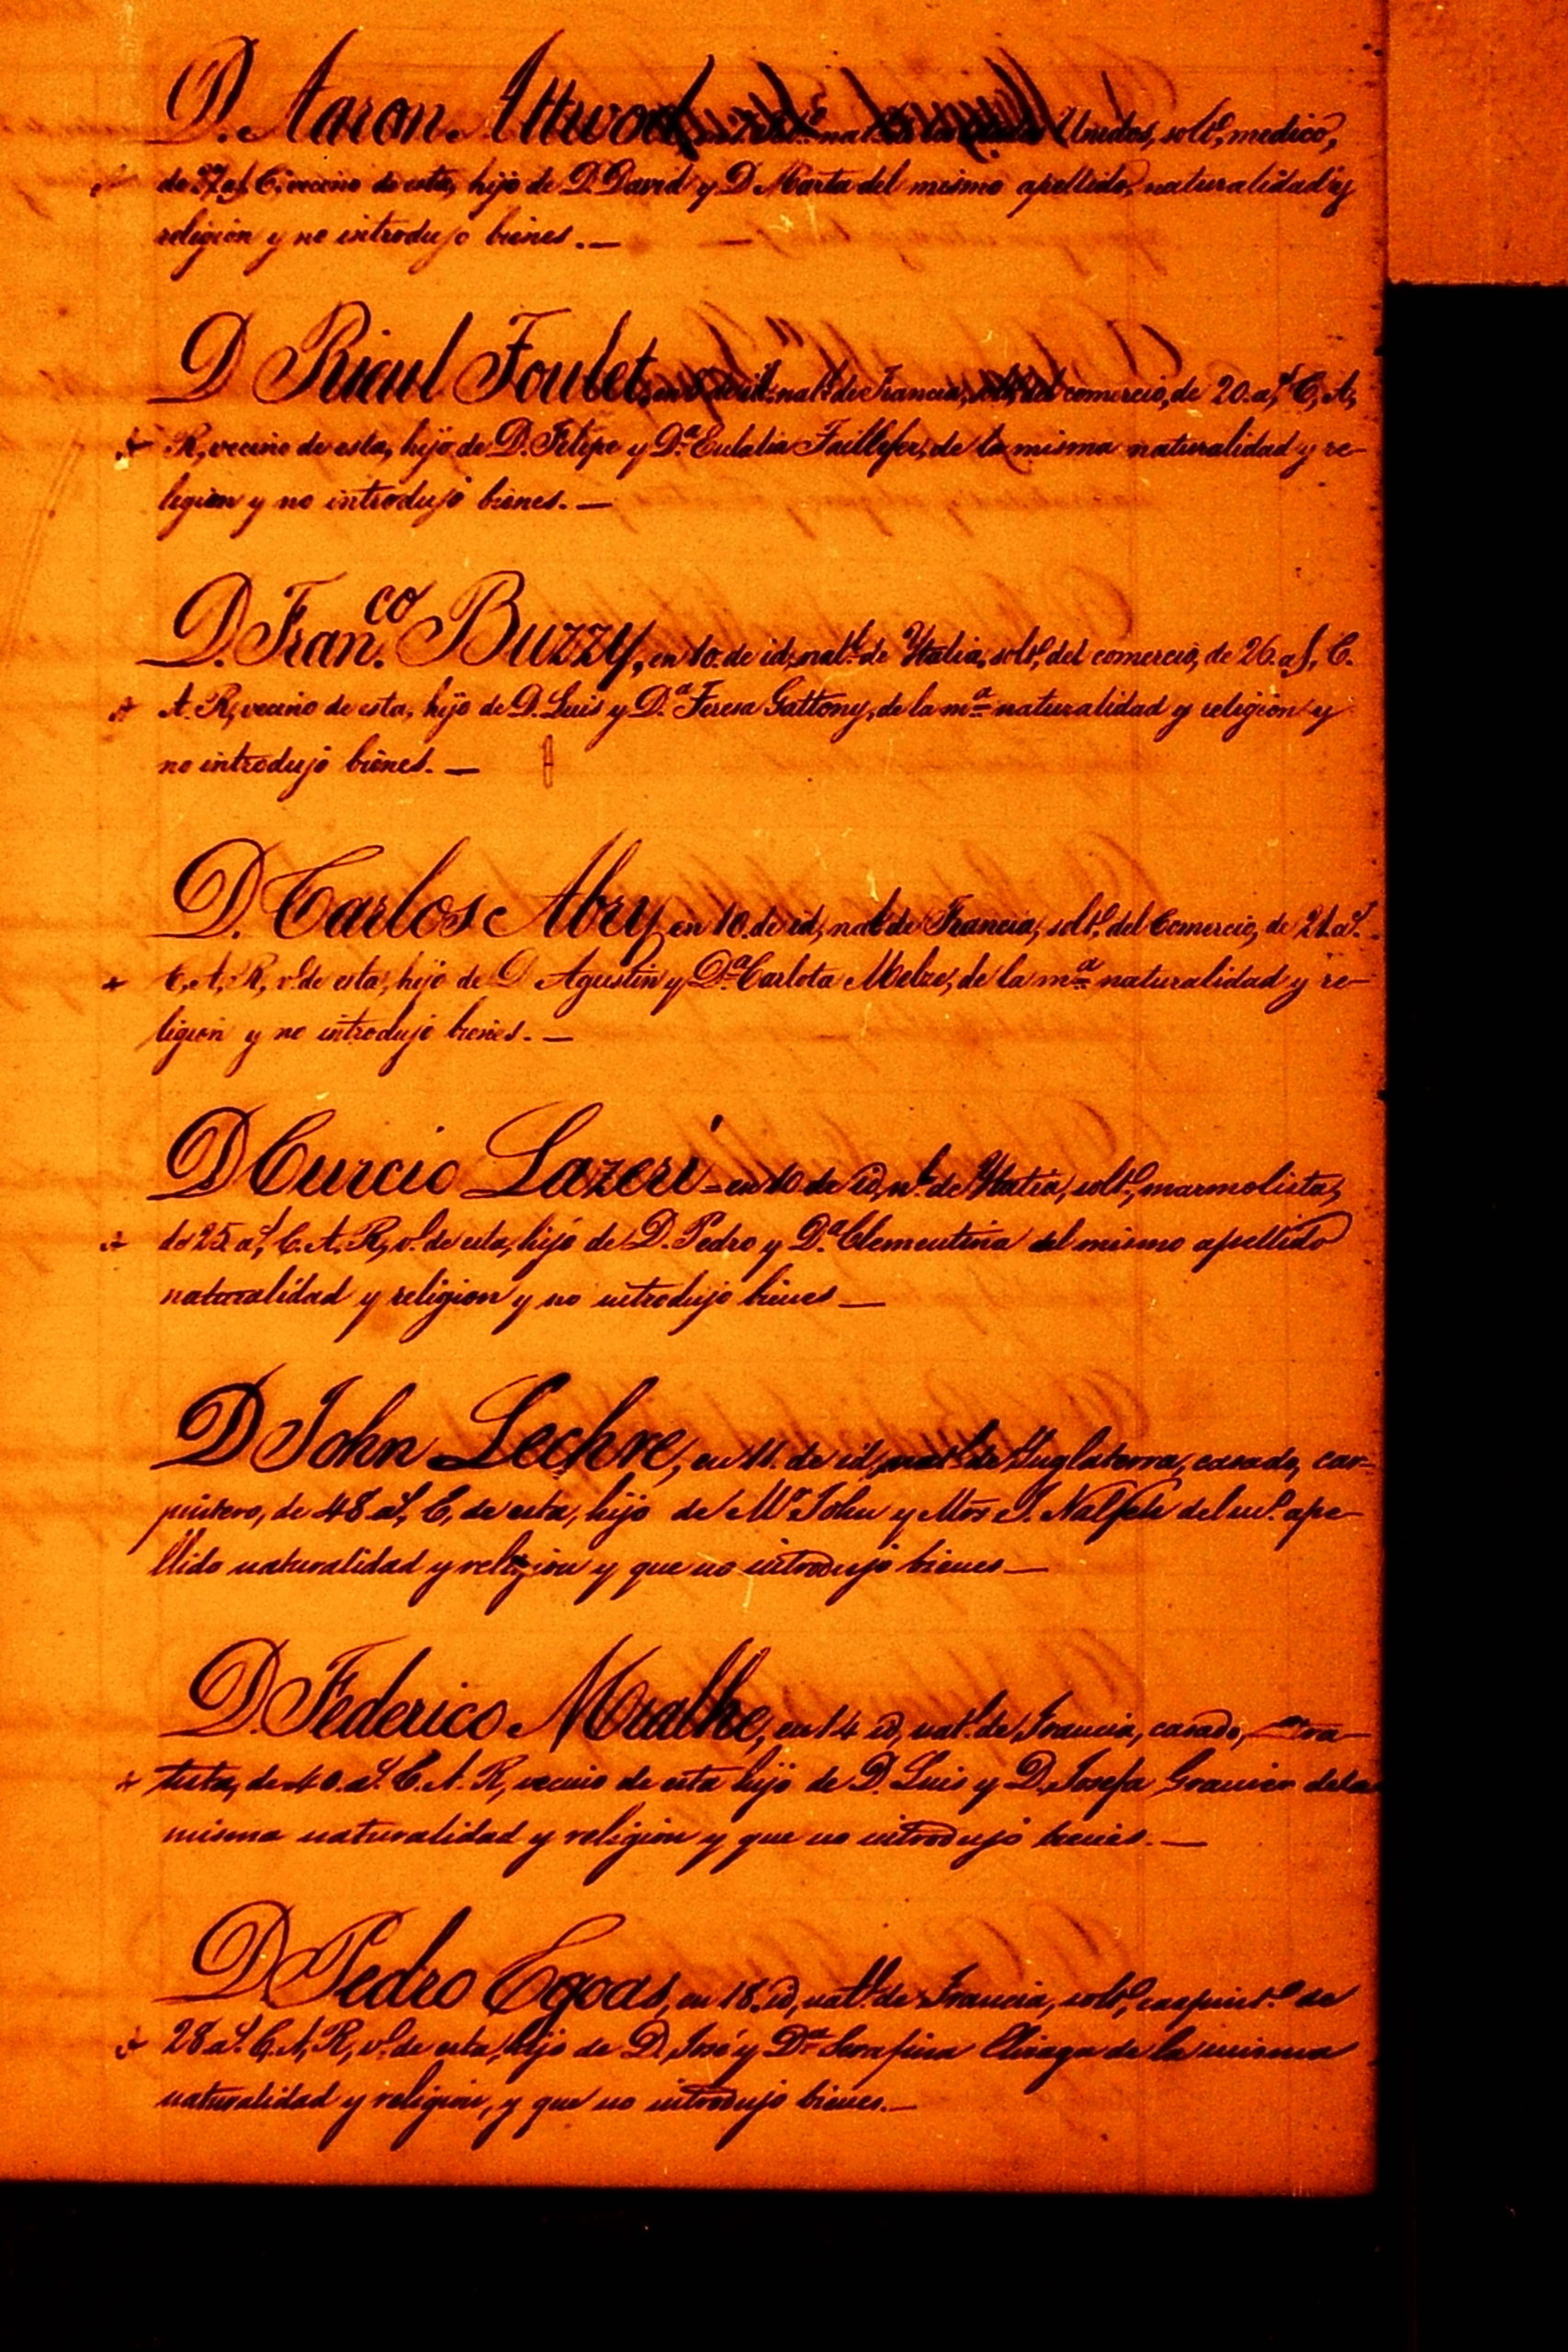 D. Aaron Attwood Unidos, solt.º, medico,
de 37 a.s C, vecino de esta, hijo de D. David y D Marta del mismo apellido, naturalidad y
religion y no introdujo bienes. —
D Rieul Foulet, nat.l de Francia, del comercio, de 20. a.s, C, A,
R, vecino de esta, hijo de D. Felipe y D.ª Eulalia Taillefer, de la misma naturalidad y re-
ligion y no introdujo bienes. —
D. Fran.co Buzzy, en 10. de id, nat.l de Ytalia, solt.º, del comercio, de 26. a.s, C.
A. R, vecino de esta, hijo de D. Luis y D.ª Teresa Gattony, de la m.ª naturalidad y religion y
no introdujo bienes. —
D. Carlos Abry en 10. de id, nat.l de Francia, solt.º, del Comercio, de 21. a.s.
C, A, R, v.º de esta, hijo de D Agustin y D.ª Carlota Melze, de la m.ª naturalidad y re-
ligion y no introdujo bienes. —
D Curcio Lazeri - en 10 de id, n.l de Ytalia, solt.º, marmolista,
de 25. a.s, C. A. R, v.º de esta, hijo de D. Pedro y D.ª Clementina del mismo apellido
naturalidad y religion y no introdujo bienes —
D John Lechre, en 11. de id, nat.l de Ynglaterra, casado, car-
pintero, de 48 a.s, C, de esta, hijo de M.r John y Mrs J. del m.º ape-
llido naturalidad y religion y que no introdujo bienes —
D. Federico Mralhe, en 14 id, nat.l de Francia, casado,
de 40. a.s. C. A. R, vecino de esta hijo de D. Luis y D. Josefa Granier de la
misma naturalidad y religion y que no introdujo bienes. —
D Pedro Egoas, en 18. id, nat.l de Francia, solt.º, carpint.º de
28 a.s. C, A, R, v.º de esta, hijo de D. José y D.ª Serafina de la misma
naturalidad y religion, y que no introdujo bienes. —